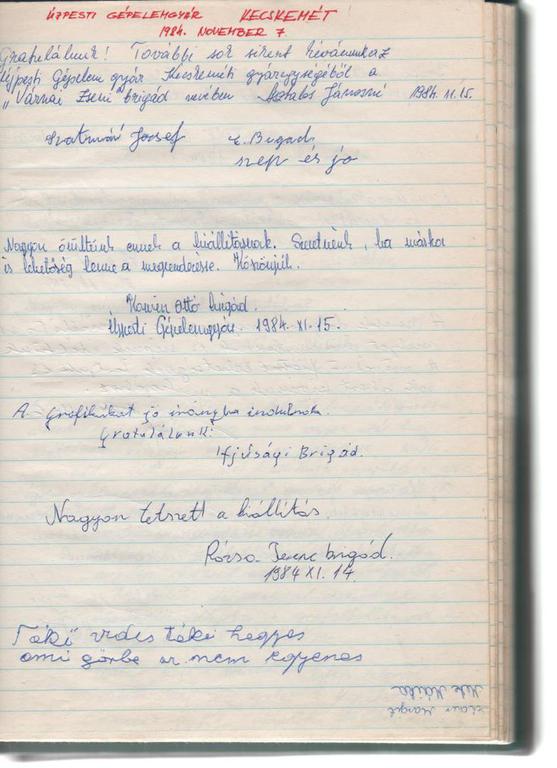 ÚJPESTI GÉPELEMGYÁR KECSKEMÉT
1984. NOVEMBER 7
Gratulálunk! További sok sikert kívánunk az
Újpesti Gépelemgyár Kecskeméti gyáregységéből a
"Várnai Zseni" brigád nevében Matalos Jánosné 1984. 11. 15.
Szatmári József
szép és jó
Nagyon örültünk ennek a kiállításnak. Szeretnénk, ha máskor
is lehetőség lenne a megrendezésre. Köszönjük.
Ottó brigád.
Újpesti Gépelemgyár. 1984. XI. 15.
A grafikákat jó irányba
Gratulálunk:
Ifjúsági Brigád.
Nagyon tetszett a kiállítás.
Rózsa Ferenc brigád.
1984 XI. 14.
hegyes
ami görbe az nem egyenes